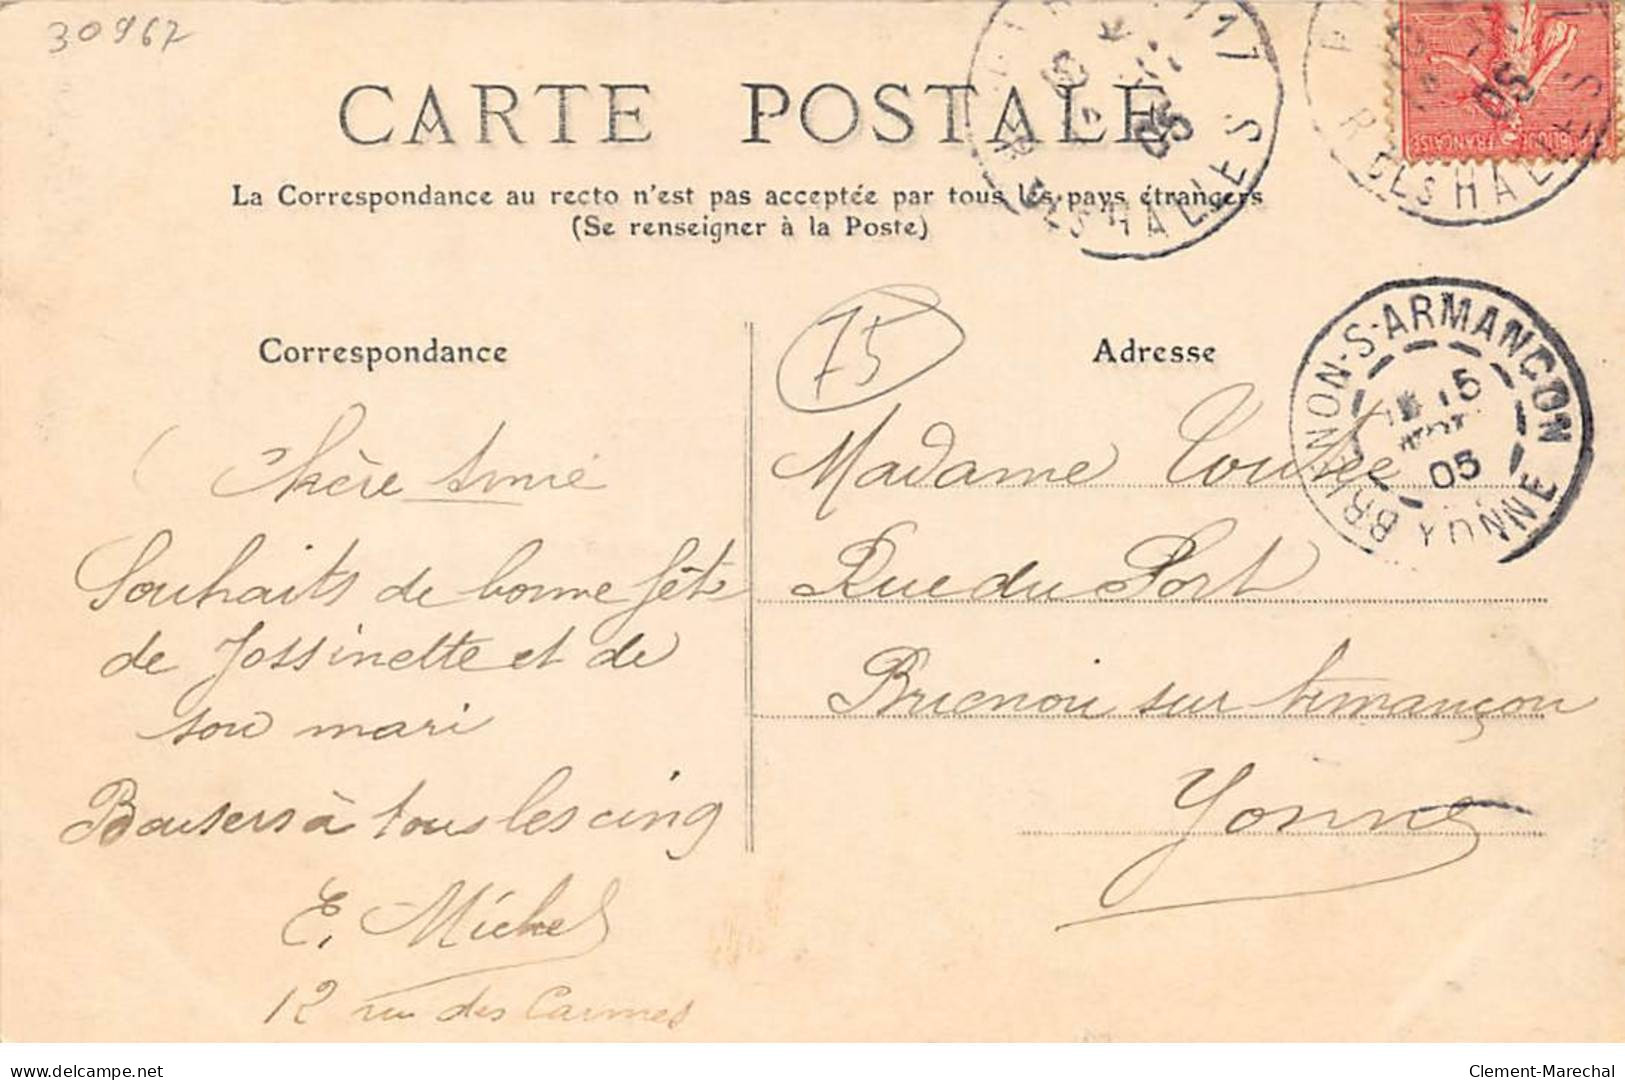 30967
CARTE POSTALE
La Correspondance au recto n'est pas acceptée par tous les pays étrangers
(Se renseigner à la Poste)
R. DES HALLES
05
R. DES HALLES
05
FRANÇAISE
BRIENON-S-ARMANÇON
15
05
YONNE
75
Correspondance
Chère Amie
Souhaits de bonne fête
de Jossinette et de
son mari
Baisers à tous les cinq
E. Michel
12 rue des Carmes
Adresse
Madame
Rue du Port
Brienon sur Armançon
Yonne
delcampe.net
Clement-Marechal